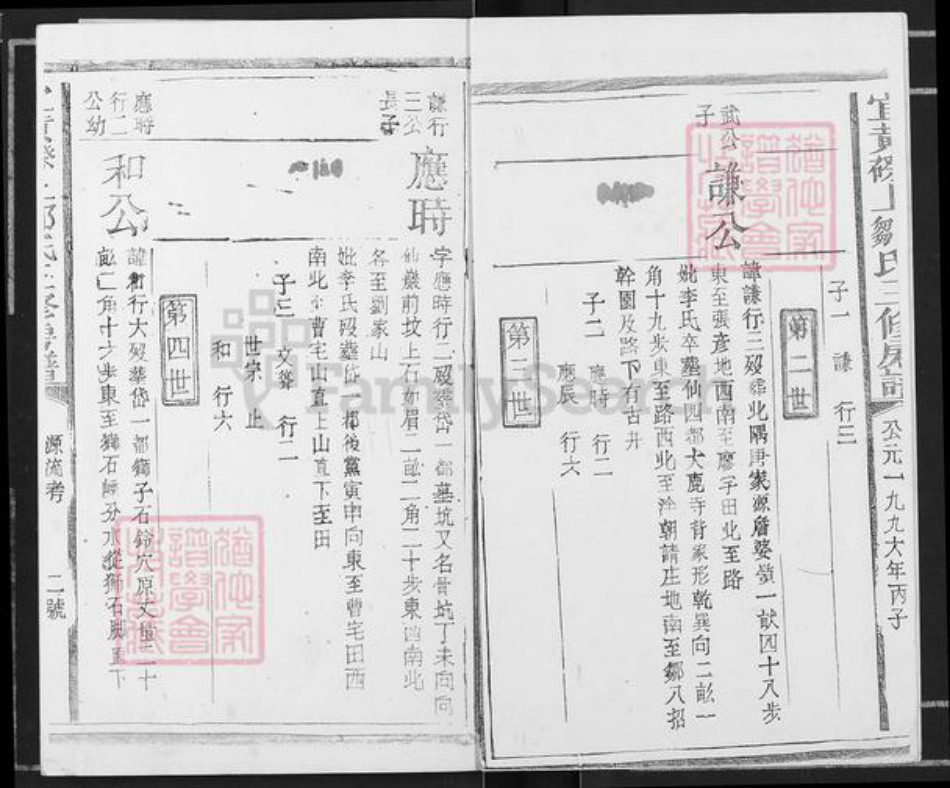 宜黃磜上鄒氏三修房譜
公元一九九六年丙子
子一 謙 行三
第二世
武公
子
謙公
諱謙行三歿葬北隅唐家源詹婆嶺一畝四十八步
東至張彥地西南至廖宇田北至路
妣李氏卒墓仙四都大鹿寺背象形乾巽向二畝一
角十九步東至路西北至洤朝請庄地南至鄒八招
幹園及路下有古井
子二 應時 行二
應辰 行六
第三世
謙行
三公
長子
應時
字應時行二歿葬岱一都墓坑又名骨坑丁未向向
仙巖前坟上石如眉二畝二角二十步東西南北
各至劉家山
妣李氏歿葬岱 都後黨寅申向東至曹宅田西
南北至曹宅山直上山直下至田
子三 文聳 行二
世宗 止
和 行六
第四世
應時
行二
公幼
和公
諱和行六歿葬岱一都獅子石鈴穴原丈量二十
畝二角十六步東至獅石 分水從獅石脚直下
源流考
二號